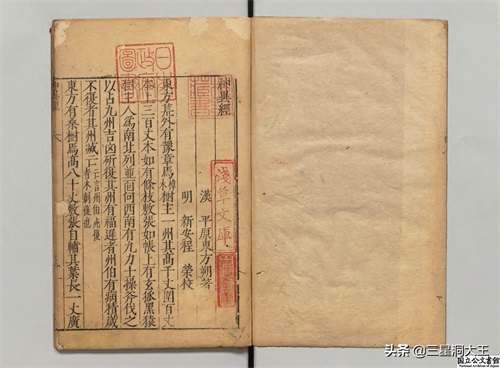 神異經
漢 平原東方朔著
明 新安程 榮校
東方荒外有豫章焉樹主一州其高千丈圍百丈
本上三百丈本如有條枝敷張如帳上有玄狐黑猿
樹主人爲南北列並面向西南有九力士操斧伐之
以占九州吉凶斫復其州有福遲者州伯有病積歲
不復者其州滅亡
東方有桑樹焉高八十丈敷張自輔其葉長一丈廣
淺草文庫
头条 @三星洞大王
国立公文書館
National Archives of Japan